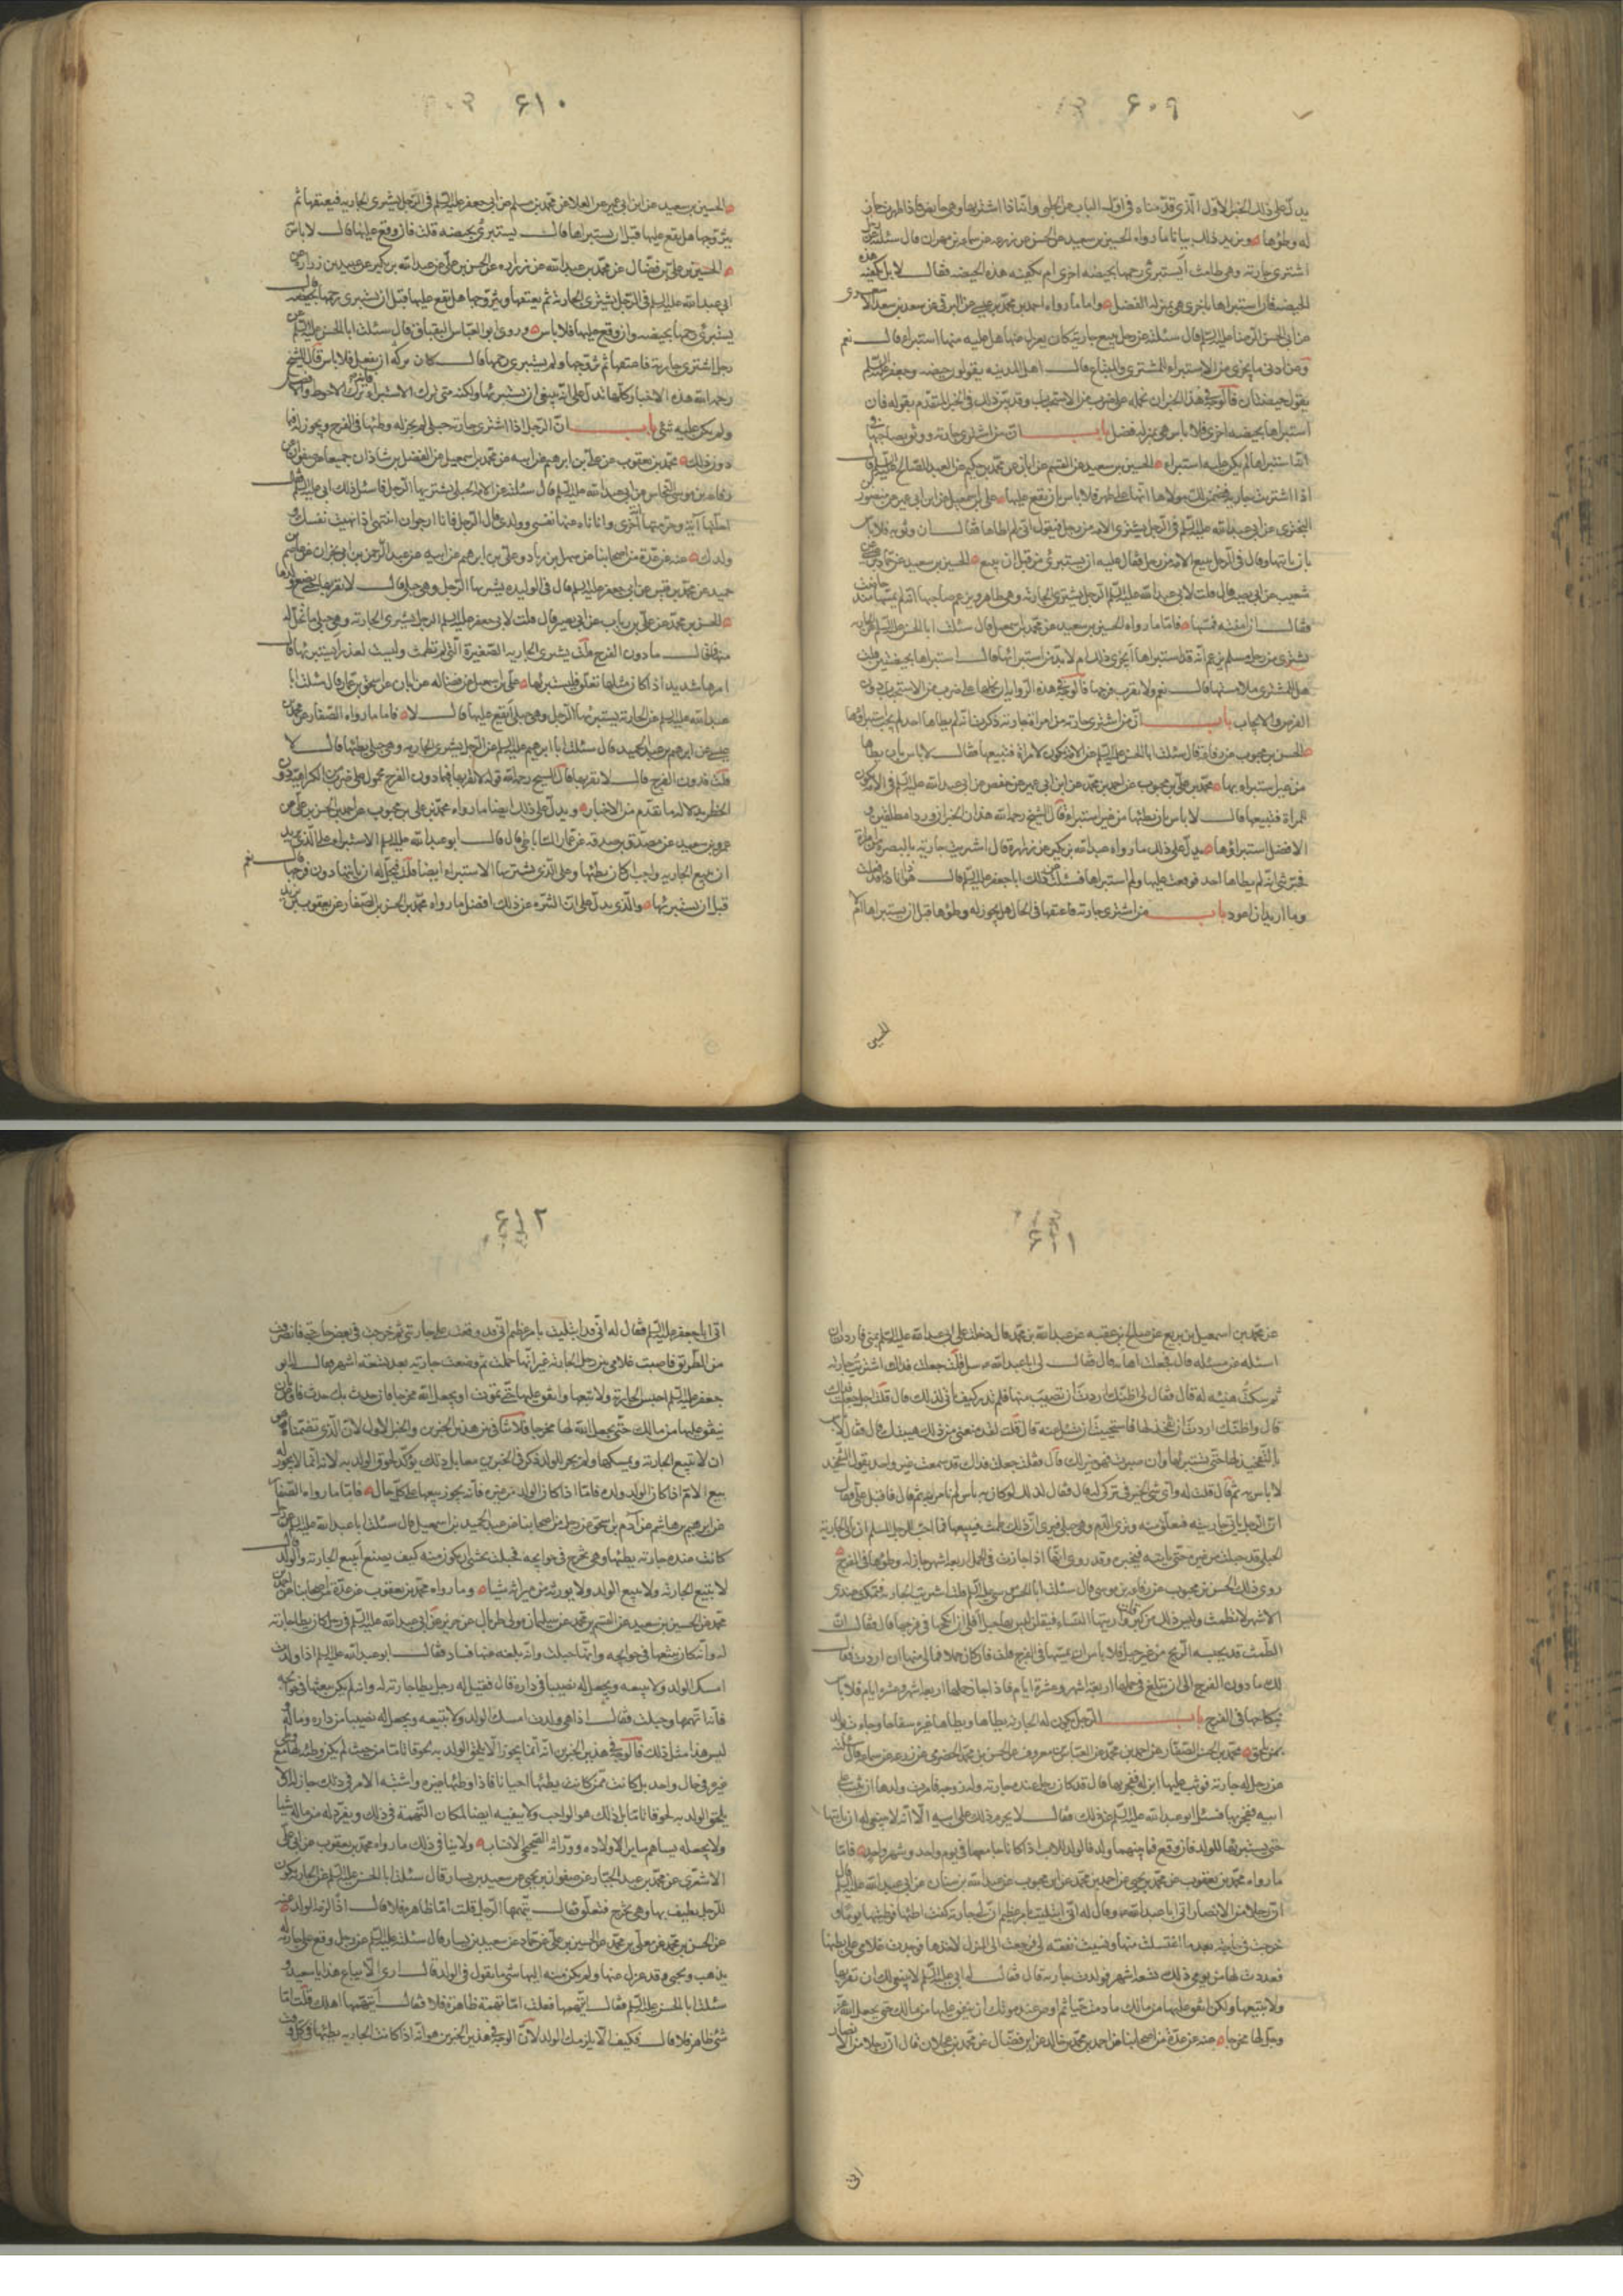 ۶۰۹
يدل على ذلك الخبر الاول الذي قدمناه في اول الباب عن الحلبي وانما اذا اشتريها وهي حايض فاذا طهرت جاز
له وطؤها ويزيد ذلك بيانا ما رواه الحسين بن سعيد عن الحسن عن زرعه عن سماعه بن مهران قال سئلته عن رجل
اشترى جارية وهي طامث أيستبرئ رحمها بحيضه اخرى ام تكفيه هذه الحيضه فقال لا بل تكفيه هذه
الحيضه فان استبراها باخرى هي بمنزلة الفضل واما ما رواه احمد بن محمد بن عيسى عن البرقي عن سعد بن سعد الاشعري
عن ابي الحسن الرضا عليه السلم قال سئلته عن رجل يبيع جارية كان يعزل عنها هل عليه منها استبراء قال نعم
وعن ادنى ما يجزي من الاستبراء للمشتري والمبتاع قال اهل المدينه يقولون حيضه وجعفر عليه السلم
يقول حيضتان فالوجه في هذا الخبر ان نحمله على ضرب من الاستحباب وقد بين ذلك في الخبر المتقدم بقوله فان
استبراها بحيضه اخرى فلا باس هي بمنزله فضل باب ان من اشترى جارية ووثق بصاحبها في
انه استبراها لم يكن عليه استبراء الحسين بن سعيد عن القسم عن ابان عن محمد بن حكيم عن العبد الصالح عليه السلم قال
اذا اشتريت جارية فضمن لك مولاها انها على طهر فلا باس بان يقع عليها علي بن اسمعيل عن ابن ابي عمير عن حفص بن
البختري عن ابي عبد الله عليه السلم في الرجل يشتري الامة من رجل فيقول اني لم اطاها فقال ان وثق به فلا باس
بان ياتيها وقال في الرجل يبيع الامة من رجل فقال عليه ان يستبرئ من قبل ان يبيع الحسين بن سعيد عن حماد عن
شعيب عن ابي بصير قال قلت لابي عبد الله عليه السلم الرجل يشتري الجارية وهي طاهر ويزعم صاحبها انه لم يمسها منذ حاضت
فقال ان امنته فمسها فاما ما رواه الحسين بن سعيد عن محمد بن اسمعيل قال سئلت ابا الحسن عليه السلم عن الجارية
تشترى من رجل مسلم يزعم انه قد استبراها أيجزي ذلك ام لا بد من استبرائها قال استبراها بحيضتين قلت
هل للمشتري ملامستها قال نعم ولا يقرب فرجها فالوجه في هذه الرواية ان نحملها على ضرب من الاستحباب دون
الفرض والايجاب باب ان من اشترى جارية من امراة فجارية ذكرت انه لم يطاها احد لم يجب استبراؤها
الحسن بن محبوب عن رفاعه قال سئلت ابا الحسن عليه السلم عن الامة تكون لامراة فتبيعها فقال لا باس بان يطاها
من غير استبراء بها محمد بن علي بن محبوب عن احمد بن محمد عن ابن ابي عمير عن حفص عن ابي عبد الله عليه السلم في الامة تكون
للمراة فتبيعها قال لا باس ان يطاها من غير استبراء قال الشيخ رحمه الله هذان الخبران وردا مطلقين و
الافضل استبراؤها يدل على ذلك ما رواه عبد الله بن بكير عن زرارة قال اشتريت جارية بالبصرة من امراة
فخبرتني انه لم يطاها احد فوقعت عليها ولم استبراها فسئلت عن ذلك ابا جعفر عليه السلم قال هو ذا انا قد فعلت
وما اريد ان اعود باب من اشترى جارية فاعتقها في الحال هل يجوز له وطؤها قبل ان يستبراها ام لا
الحسين
۶۱۰
الحسين بن سعيد عن ابن ابي عمير عن العلا عن محمد بن مسلم عن ابي جعفر عليه السلم في الرجل يشتري الجارية فيعتقها ثم
يتزوجها هل يقع عليها قبل ان يستبراها قال يستبرئ بحيضه قلت فان وقع عليها قال لا باس
الحسين عن علي بن فضال عن محمد بن عبد الله عن زرارة عن الحسن بن علي عن عبد الله بن بكير عن عبيد بن زرارة عن
ابي عبد الله عليه السلم في الرجل يشتري الجارية ثم يعتقها ويتزوجها هل يقع عليها قبل ان يستبرئ رحمها قال
يستبرئ رحمها بحيضه وان وقع عليها فلا باس وروى ابو العباس البقباق قال سئلت ابا الحسن عليه السلم عن
رجل اشترى جارية فاعتقها ثم تزوجها ولم يستبرئ رحمها قال كان نوله ان يفعل فلا باس قال الشيخ
رحمه الله هذه الاخبار كلها تدل على انه ينبغي ان يستبرئها ولكنه متى ترك الاستبراء فانه ترك الاحوط والافضل
ولم يكن عليه شئ باب ان الرجل اذا اشترى جارية حبلى لم يجز له وطئها في الفرج ويجوز له فيما
دون ذلك محمد بن يعقوب عن علي بن ابرهيم عن ابيه عن محمد بن اسمعيل عن الفضل بن شاذان جميعا عن صفوان عن
رفاعه بن موسى النخاس عن ابي عبد الله عليه السلم قال سئلته عن الامة الحبلى يشتريها الرجل قال سئل ذلك ابي عليه السلم فقال
احلتها آية وحرمتها اخرى وانا ناه عنها نفسي وولدي قال الرجل فانا ارجو ان انتهي اذا نهيت نفسك و
ولدك عنه عن عدة من اصحابنا عن سهل بن زياد وعلي بن ابرهيم عن ابيه عن عبد الرحمن بن ابي نجران عن عاصم بن
حميد عن محمد بن قيس عن ابي جعفر عليه السلم قال في الوليدة يشتريها الرجل وهي حبلى قال لا يقربها حتى تضع ولدها
الحسن بن محمد عن علي بن رياب عن ابي بصير قال قلت لابي جعفر عليه السلم الرجل يشتري الجارية وهي حبلى ما يحل له
منها قال ما دون الفرج قلت يشتري الجارية الصغيرة التي لم تطمث وليست بعذرا أيستبرئها قال
امرها شديد اذا كان مثلها تعلق فليستبرئها علي بن اسمعيل عن فضاله عن ابان عن اسحق بن عمار قال سئلت ابا
عبد الله عليه السلم عن الجارية يشتريها الرجل وهي حبلى أيقع عليها قال لا فاما ما رواه الصفار عن محمد بن
عيسى عن ابرهيم بن عبد الحميد قال سئلت ابا ابرهيم عليه السلم عن الرجل يشتري الجارية وهي حبلى يطئها قال لا
قلت فدون الفرج قال لا يقربها قال الشيخ رحمه الله قوله لا يقربها فيما دون الفرج محمول على ضرب من الكراهية دون
الحظر بدلالة ما تقدم من الاخبار ويدل على ذلك ايضا ما رواه محمد بن علي بن محبوب عن احمد بن الحسن بن علي عن
عمرو بن سعيد عن مصدق بن صدقة عن عمار الساباطي قال قال ابو عبد الله عليه السلم الاستبراء على الذي يريد
ان يبيع الجارية واجب ان كان يطئها وعلى الذي يشتريها الاستبراء ايضا قلت فيحل له ان ياتيها دون فرجها قال نعم
قبل ان يستبرئها والذي يدل على ان التنزه عن ذلك افضل ما رواه محمد بن الحسن الصفار عن يعقوب بن يزيد
۶۱۱
عن محمد بن اسمعيل بن بزيع عن صالح بن عقبه عن عبد الله بن محمد قال دخلت على ابي عبد الله عليه السلم بمنى فاردت ان
اسئله عن مسئله قال فجعلت اهابه قال فقال لي يا عبد الله سل قلت جعلت فداك اشتريت جارية
ثم سكت هيبة له قال فقال لي اظنك اردت ان تصيب منها فلم تدر كيف تاتي لذلك قال قلت اجل جعلت فداك
قال واظنك اردت ان تفخذ لها فاستحييت ان تسئل عنه قال قلت لقد منعني من ذلك هيبتك قال فقال لا باس
بالتفخيذ لها حتى تستبرئها وان صبرت فهو خير لك قال فقلت جعلت فداك قد سمعت غير واحد يقول التفخيذ
لا باس به ثم قال قلت له واي شئ الخير في تركي له قال فقال كذلك لو كان به باس لم نامر به ثم قال فاقبل علي فقال
ان الرجل ياتي جاريته فتعلق منه وترى الدم وهي حبلى فيرى ان ذلك طمث فيبيعها فما احب للرجل المسلم ان ياتي الجارية
الحبلى قد حبلت من غيره حتى ياتيه فيخبره وقد روي انها اذا جازت في الحمل اربعة اشهر جاز له وطؤها في الفرج
روى ذلك الحسن بن محبوب عن رفاعه بن موسى قال سئلت ابا الحسن موسى عليه السلم قلت اشتري الجارية فتمكث عندي
الاشهر لا تطمث وليس ذلك من كبر واريتها النساء فيقلن ليس بها حبل أفلي ان انكحها في فرجها قال فقال ان
الطمث قد يحبسه الريح من غير حبل فلا باس ان تمسها في الفرج قلت فان كان حملا فما لي منها ان اردت فقال
لك ما دون الفرج الى ان تبلغ في حملها اربعة اشهر وعشرة ايام فاذا جاز حملها اربعة اشهر وعشرة ايام فلا باس
بنكاحها في الفرج باب الرجل يكون له الجارية يطاها ويطاها غيره سفاحا وجاءت بولد
بمن يلحق محمد بن الحسن الصفار عن احمد بن محمد عن العباس بن معروف عن الحسن بن محمد الحضرمي عن زرعه عن سماعه قال سئلته
عن رجل له جارية فوثب عليها ابن له ففجر بها قال قد كان رجل عنده جارية وله زوجة فامرت ولدها ان يثب على جارية
ابيه ففجر بها فسئل ابو عبد الله عليه السلم عن ذلك فقال لا يحرم ذلك على ابيه الا انه لا ينبغي له ان ياتيها
حتى يستبرئها للولد فان وقع فيما بينهما ولد فالولد للاب اذا كانا جامعاها في يوم واحد وشهر واحد فاما
ما رواه محمد بن يعقوب عن محمد بن يحيى عن احمد بن محمد عن ابن محبوب عن عبد الله بن سنان عن ابي عبد الله عليه السلم قال
ان رجلا من الانصار اتى ابا عبد الله ع وقال له اني ابتليت بامر عظيم ان لي جارية كنت اطئها فوطئتها يوما و
خرجت في حاجة بعد ما اغتسلت منها ونسيت نفقة لي فرجعت الى المنزل لاخذها فوجدت غلامي على بطنها
فعددت لها من يومي ذلك تسعة اشهر فولدت جارية قال فقال له ابي عليه السلم لا ينبغي لك ان تقربها
ولا تبيعها ولكن انفق عليها من مالك ما دمت حيا ثم اوص عند موتك ان ينفق عليها من مالك حتى يجعل الله
عز وجل لها مخرجا عنه عن عدة من اصحابنا عن احمد بن محمد بن خالد عن ابن فضال عن محمد بن عجلان قال ان رجلا من الانصار
اتى
۶۱۲
اتى ابا جعفر عليه السلم فقال له اني قد ابتليت بامر عظيم اني قد وقعت على جاريتي ثم خرجت في بعض حاجتي فانصرفت
من الطريق فاصبت غلامي بين رجلي الجارية غير انها حملت ثم وضعت جارية بعد تسعة اشهر فقال له ابو
جعفر عليه السلم احبس الجارية ولا تبعها وانفق عليها حتى تموت او يجعل الله مخرجا فان حدث بك حدث فاوص ان
ينفق عليها من مالك حتى يجعل الله لها مخرجا فلا تنافي بين هذين الخبرين والخبر الاول لان الذي تضمناه هو
ان لا يبيع الجارية ويمسكها ولم يجر للولد ذكر في الخبرين معا بل ذلك يؤكد لحوق الولد به لانه انما لا يجوز له
بيع الام اذا كان الولد ولده فاما اذا كان الولد من غيره فانه يجوز بيعها على كل حال فاما ما رواه الصفار
عن ابرهيم بن هاشم عن آدم بن اسحق عن رجل من اصحابنا عن عبد الحميد بن اسمعيل قال سئلت ابا عبد الله عليه السلم عن رجل
كانت عنده جارية يطئها وهي تخرج في حوايجه فحبلت فخشي ان يكون منه كيف يصنع أيبيع الجارية والولد قال
لا يبيع الجارية ولا يبيع الولد ولا يورثه من ميراثه شيئا وما رواه محمد بن يعقوب عن عدة من اصحابنا عن احمد بن
محمد عن الحسين بن سعيد عن القسم بن محمد عن سليمان مولى طربال عن حريز عن ابي عبد الله عليه السلم في رجل كان يطا جارية
له وانه كان يبعثها في حوايجه وانها حبلت وانه بلغه عنها فساد فقال ابو عبد الله عليه السلم اذا ولدت
امسك الولد ولا يبيعه ويجعل له نصيبا في داره قال فقيل له رجل يطا جارية له وانه لم يكن يبعثها في حوايجه
وانه اتهمها وحبلت فقال اذا هي ولدت امسك الولد ولا يبيعه ويجعل له نصيبا من داره وماله و
ليس هذا مثل ذلك فالوجه في هذين الخبرين انه انما يجوز الا يلحق الولد به لحوقا تاما من حيث لم يكن وطئه لها مع وطئ
غيره في حال واحد بل كانت ممن كانت يطئها احيانا فاذا وطئها غيره واشتبه الامر في ذلك جاز له الا
يلحق الولد به لحوقا تاما بل ذلك هو الواجب ولا ينفيه ايضا لمكان التهمة في ذلك ويفرد له من ماله شيا
ولا يجعله يساهم ساير الاولاد وورثه الصحيحي الانساب ولا ينافي ذلك ما رواه محمد بن يعقوب عن ابي علي
الاشعري عن محمد بن عبد الجبار عن صفوان بن يحيى عن سعيد بن يسار قال سئلت ابا الحسن عليه السلم عن الجارية تكون
للرجل يطيف بها وهي تخرج فتعلق قال يتهمها الرجل قلت اما ظاهرة فلا قال اذا لزمه الولد عنه
عن الحسين بن محمد عن معلى بن محمد عن الحسن بن علي عن حماد عن سعيد بن يسار قال سئلته عليه السلم عن رجل وقع على جارية له
يذهب ويجيء وقد عزل عنها ولم يكن منه اليها شئ ما يقول في الولد قال ارى الا يباع هذا يا سعيد و
سئلت ابا الحسن عليه السلم فقال أيتهمها فقلت اما تهمة ظاهرة فلا فقال أيتهمها اهلك قلت اما
شئ ظاهر فلا قال فكيف الا يلزمك الولد لان الوجه في هذين الخبرين هو انه اذا كانت الجارية يطئها في كل وقت